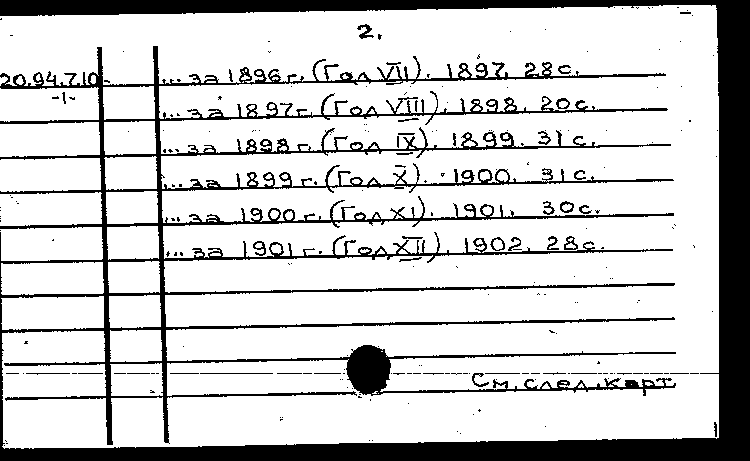 2.
20.94.7.10- ... за 1896 г. (Год VII). 1897. 28 с.
-1- ... за 1897 г. (Год VIII). 1898. 20 с.
... за 1898 г. (Год IX). 1899. 31 с.
... за 1899 г. (Год X). 1900. 31 с.
... за 1900 г. (Год XI). 1901. 30 с.
... за 1901 г. (Год XII). 1902. 28 с.
См. след. карт.